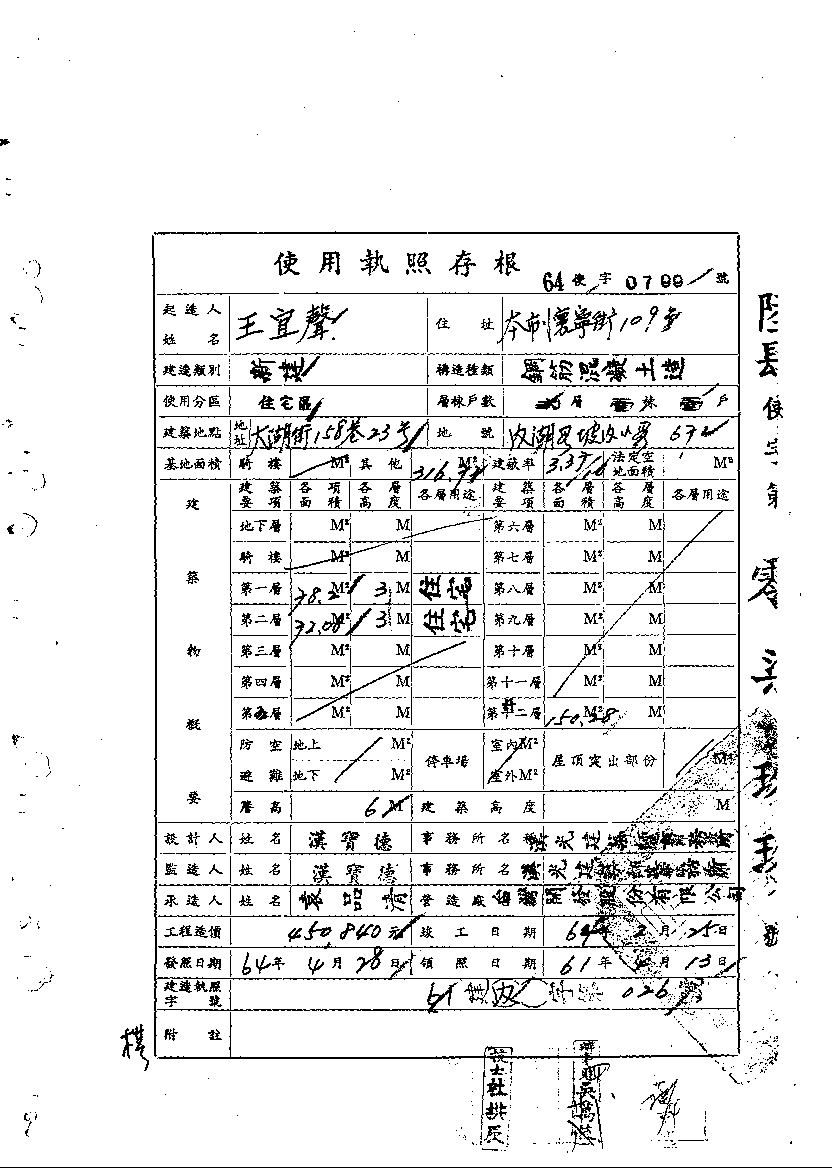 使用執照存根
64使字0799號
起造人姓名 王宜聲 住址 本市懷寧街109號
建造類別 新建 構造種類 鋼筋混凝土造
使用分區 住宅區 層棟戶數 層 棟 戶
建築地點 地址 大湖街158巷23号 地號 內湖區坡內小段 672
基地面積 騎樓 M² 其他 316.9 M² 建蔽率 法定空地面積 M²
建築物概要
建築要項 各項面積 各層高度 各層用途 建築要項 各層面積 各層高度 各層用途
地下層 M² M 第六層 M² M
騎樓 M² M 第七層 M² M
第一層 M² 3 M 住宅 第八層 M² M
第二層 32.08 M² 3 M 住宅 第九層 M² M
第三層 M² M 第十層 M² M
第四層 M² M 第十一層 M² M
第五層 M² M 第十二層 計 150.28
防空避難 地上 M² 地下 M² 停車場 室內M² 屋外M² 屋頂突出部份 M²
簷高 6 M 建築高度 M
設計人 姓名 漢寶德 事務所名 漢光建築師事務所
監造人 姓名 漢寶德 事務所名 漢光建築師事務所
承造人 姓名 袁品清 營造廠 開發股份有限公司
工程造價 450,840元 竣工日期 64年2月25日
發照日期 64年4月28日 領照日期 61年4月13日
建造執照字號 61建 字第 026 號
附註
使字第
零
號
技士杜拱辰